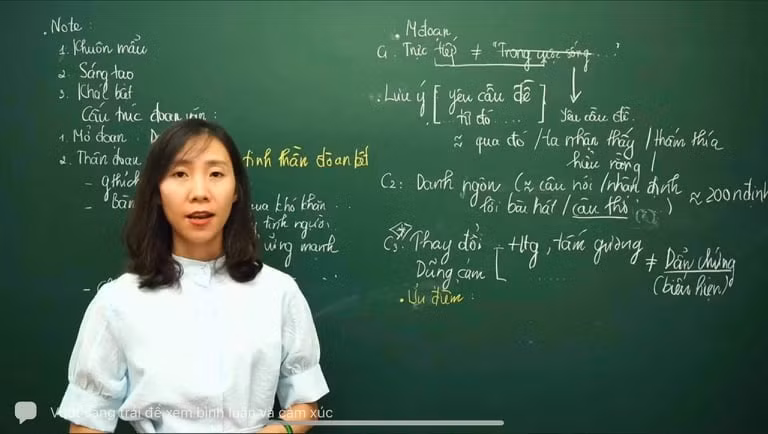 . Note :
1. Khuôn mẫu
2. Sáng tạo
3. Khác biệt
Cấu trúc đoạn văn :
1. Mở đoạn
2. Thân đoạn
tinh thần đoàn kết
- gthích
- Bàn
qua khó khăn ..
tình người
vững mạnh
. Mđoạn
C1. Trực tiếp ≠ "Trong cuộc sống ..."
. Lưu ý [ yêu cầu đề ]
Từ đó .....
Yêu cầu đề.
≈ qua đó / ta nhận thấy / thấm thía
hiểu rằng /
C2: Danh ngôn (≈ câu nói / nhận định
lời bài hát / câu thơ ) ≈ 200 nđịnh
C3: Thay đổi - tấm gương ≠ Dẫn chứng
Dũng cảm [ ..... (biểu hiện)
. Ưu điểm :
Vuốt sang trái để xem bình luận và cảm xúc